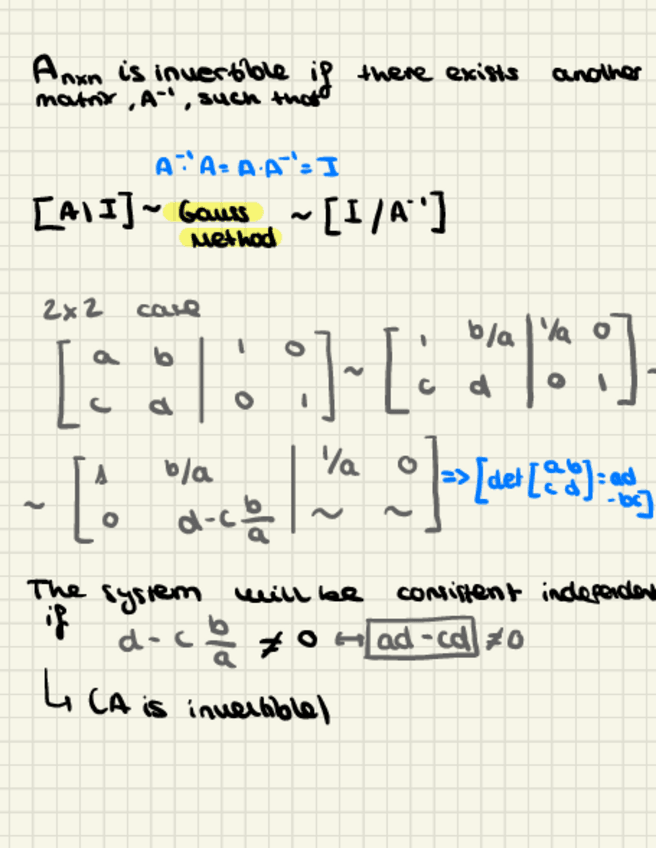 A nxn is invertible if there exists another
matrix, A⁻¹, such that
A⁻¹·A = A·A⁻¹ = I
[A | I] ~ Gauss Method ~ [I / A⁻¹]
2x2 case
[a b | 1 0; c d | 0 1] ~ [1 b/a | 1/a 0; c d | 0 1] ~
~ [1 b/a | 1/a 0; 0 d-c b/a | ~ ~] => [det[a b; c d] = ad - bc]
The system will be consistent independent
if
d - c b/a ≠ 0 ↔ ad - cd ≠ 0
↳ (A is invertible)